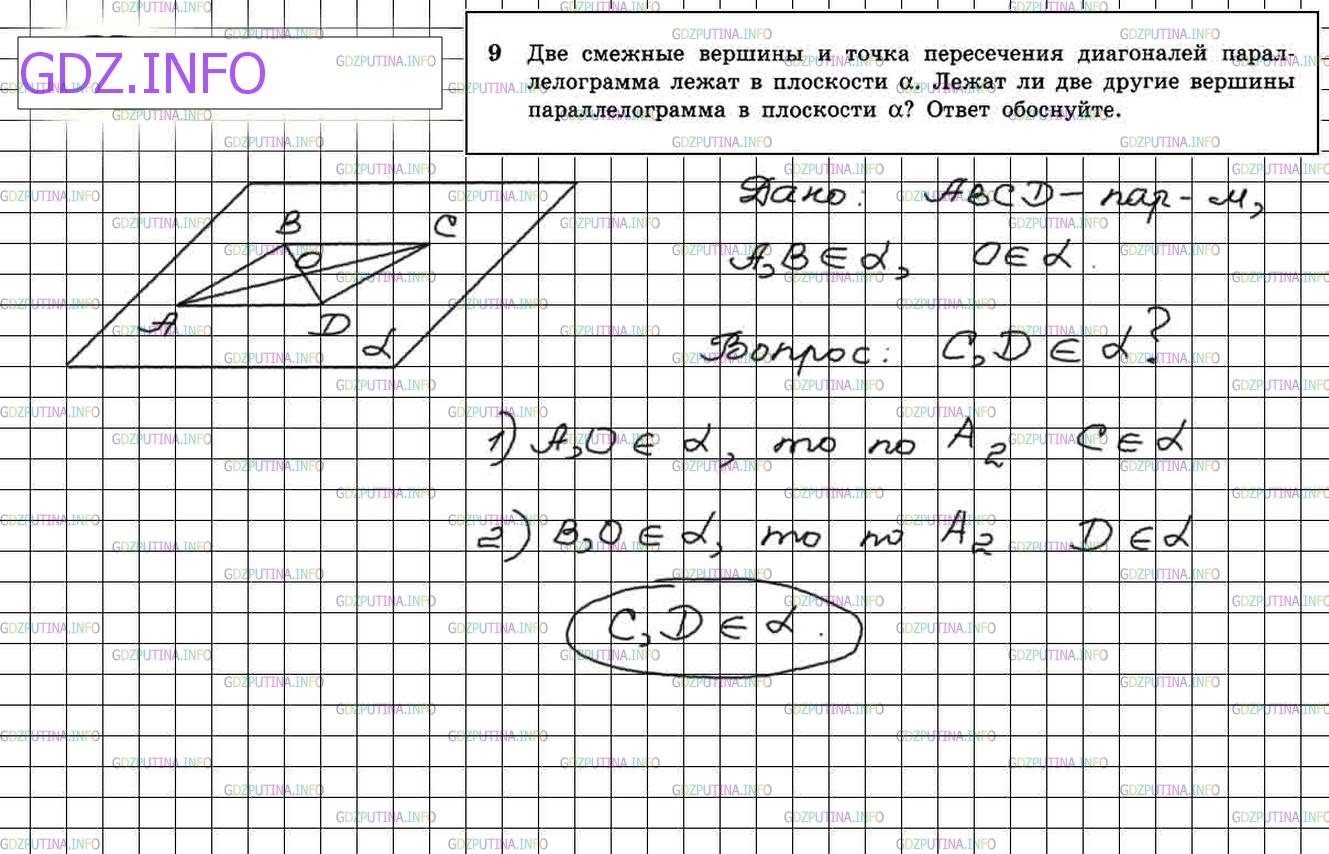 GDZ.INFO
9 Две смежные вершины и точка пересечения диагоналей парал-
лелограмма лежат в плоскости α. Лежат ли две другие вершины
параллелограмма в плоскости α? Ответ обоснуйте.
Дано: ABCD – пар-м,
A,B ∈ α, O ∈ α.
Вопрос: C,D ∈ α?
B
C
O
A
D
α
1) A,O ∈ α, то по A₂ C ∈ α
2) B,O ∈ α, то по A₂ D ∈ α
C,D ∈ α.
GDZPUTINA.INFO